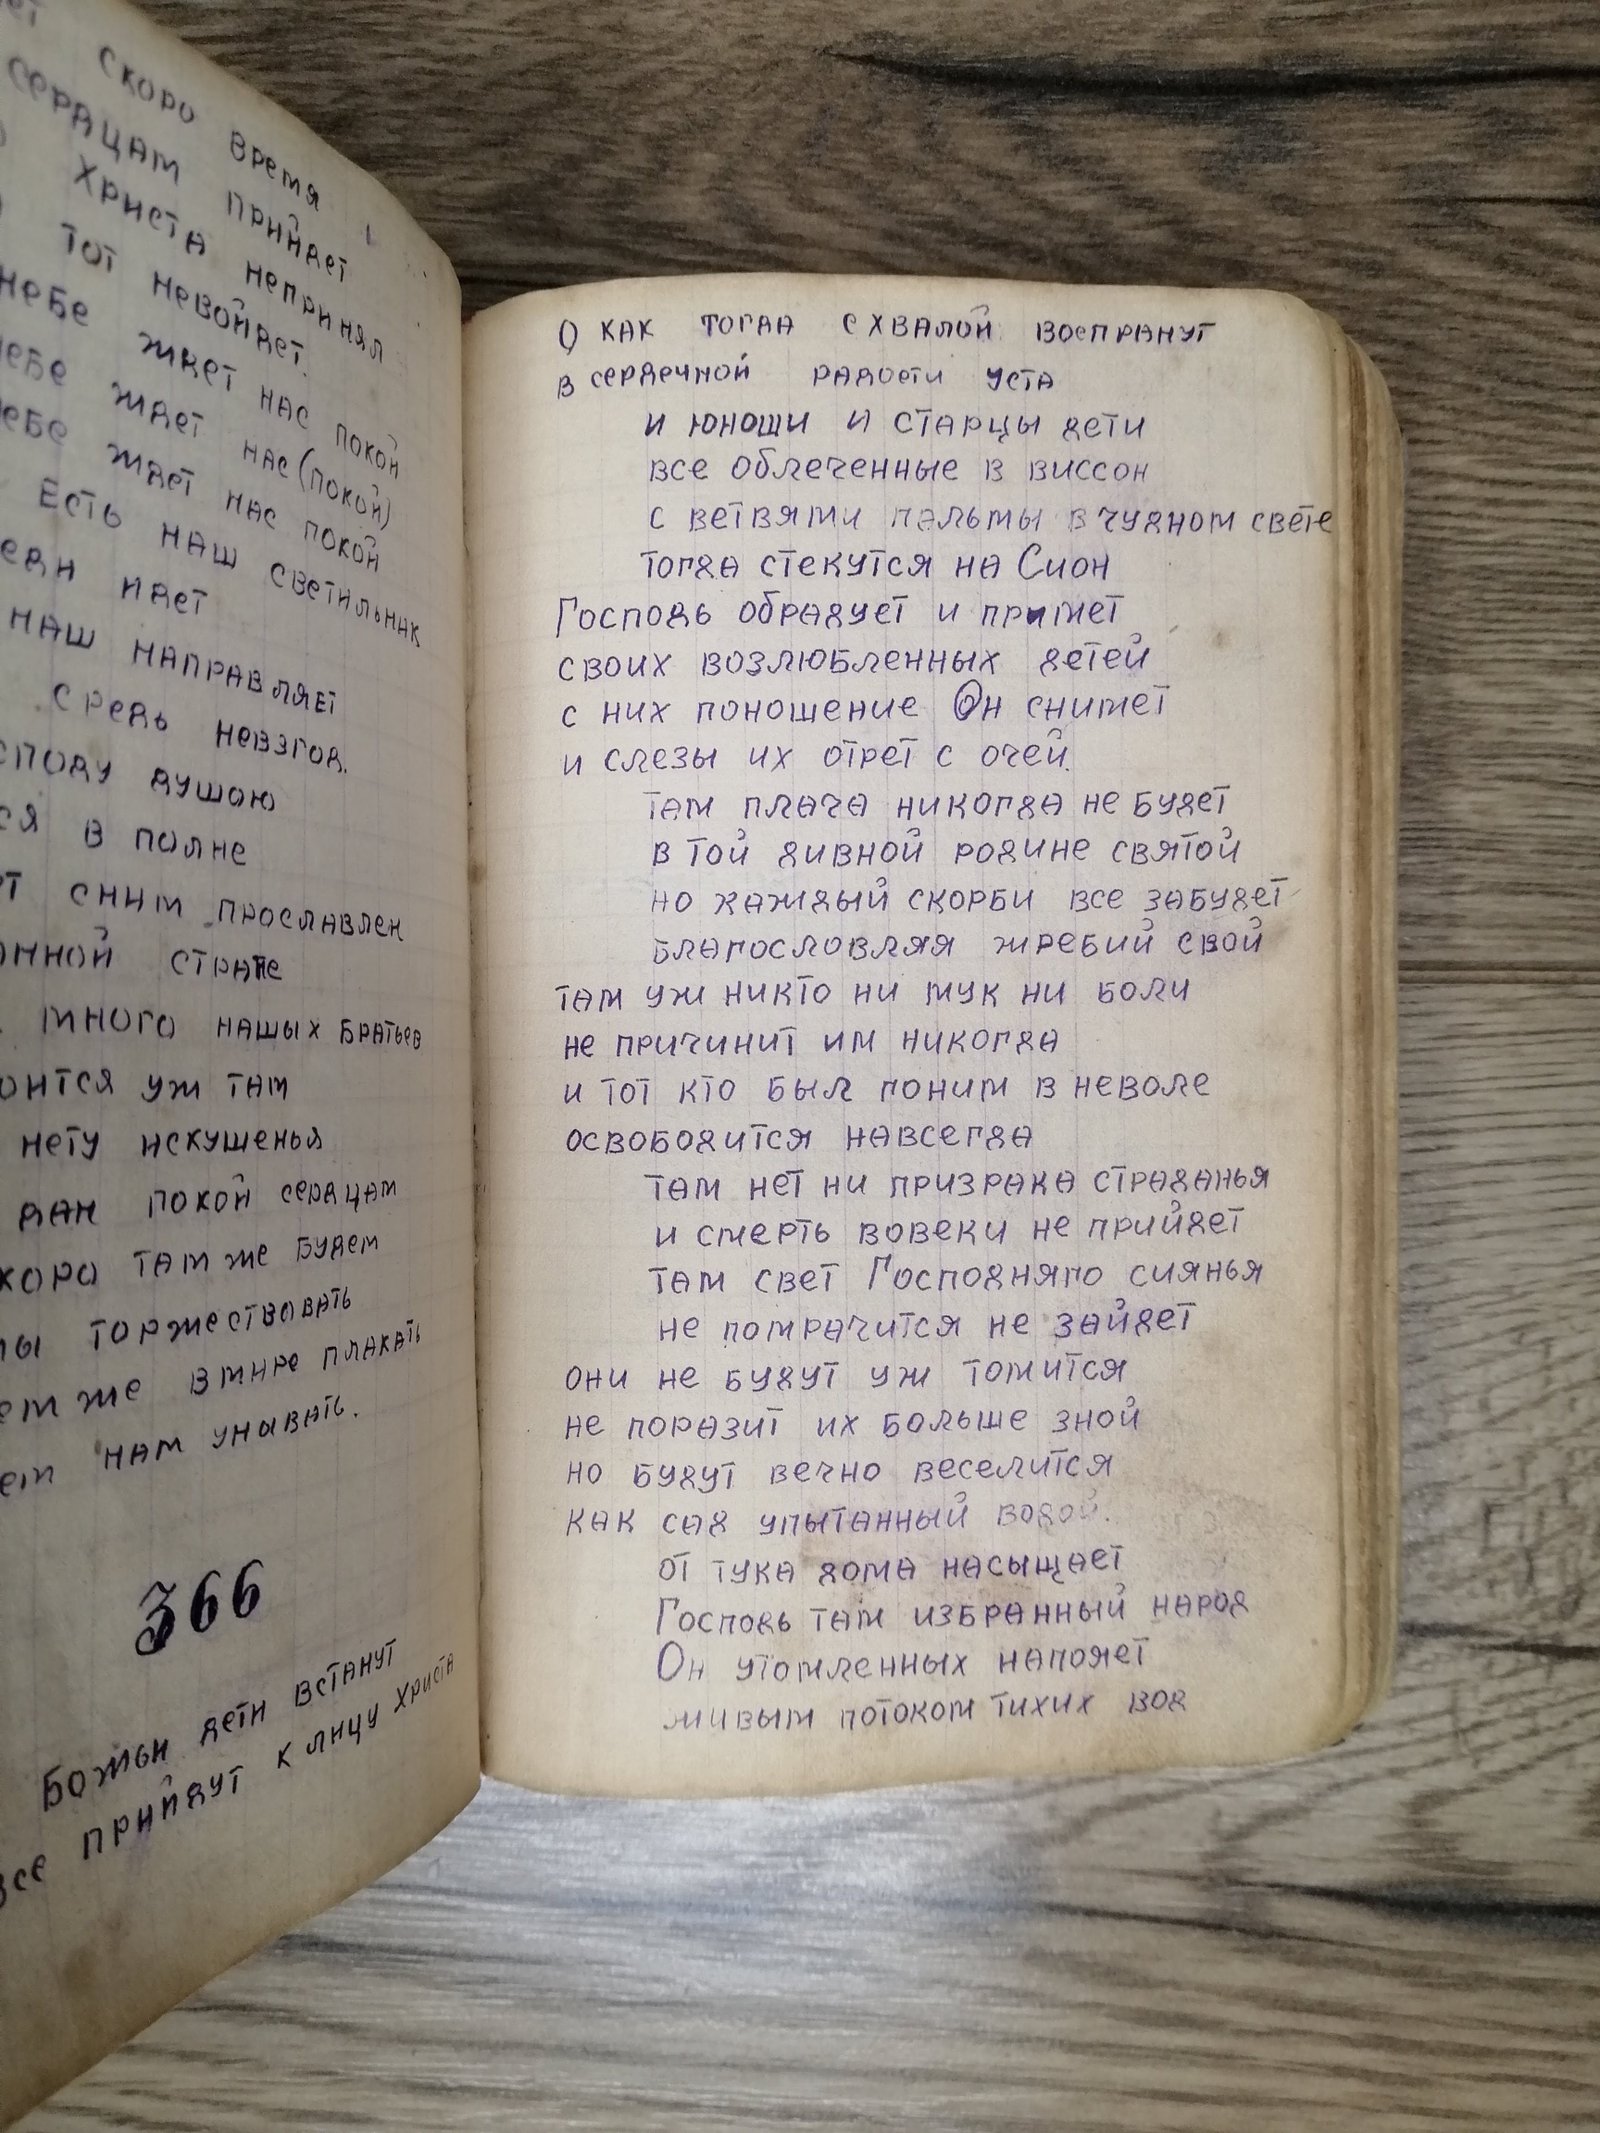 скоро время
сердцам прийдет
Христа непринял
тот невойдет.
небе ждет нас покой
небе ждет нас (покой)
небе ждет нас покой
Есть наш светильник
идет
наш направляет
средь невзгод.
душою
в полне
сним прославлен
стране
много нашых братьев
уж там
нету искушенья
дан покой сердцам
скоро там же будем
торжествовать
же вмире плакать
нам унывать.
366
Божьи дети встанут
все прийдут к лицу Христа
О как тогда с хвалой воспранут
в сердечной радости уста
и юноши и старцы дети
все облеченные в виссон
с ветвями пальмы в чудном свете
тогда стекутся на Сион
Господь обрадует и примет
своих возлюбленных детей
с них поношение Он снимет
и слезы их отрет с очей.
там плача никогда не будет
в той дивной родине святой
но каждый скорби все забудет
благословляя жребий свой
там уж никто ни мук ни боли
не причинит им никогда
и тот кто был поним в неволе
освободится навсегда
там нет ни призрака страданья
и смерть вовеки не прийдет
там свет Господняго сиянья
не помрачится не зайдет
они не будут уж томится
не поразит их больше зной
но будут вечно веселится
как сад упытанный водой.
от тука дома насыщает
Господь там избранный народ
Он утомленных напояет
живым потоком тихих вод